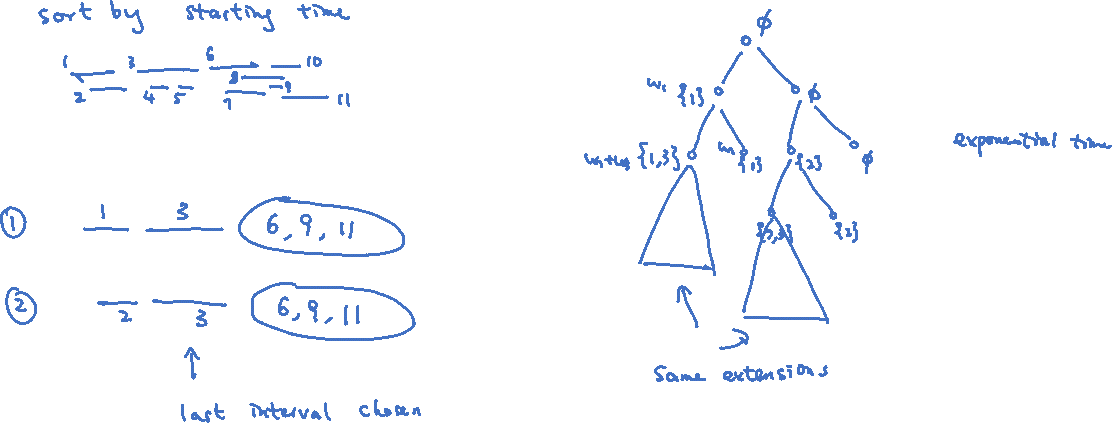 sort by starting time
1 3 6 10
2 4 5 7 8 9 11
① 1 3 6, 9, 11
② 2 3 6, 9, 11
last interval chosen
∅
w₁ {1} ∅
{1,3} {1} {2} ∅
{2,3} {2}
same extensions
exponential time